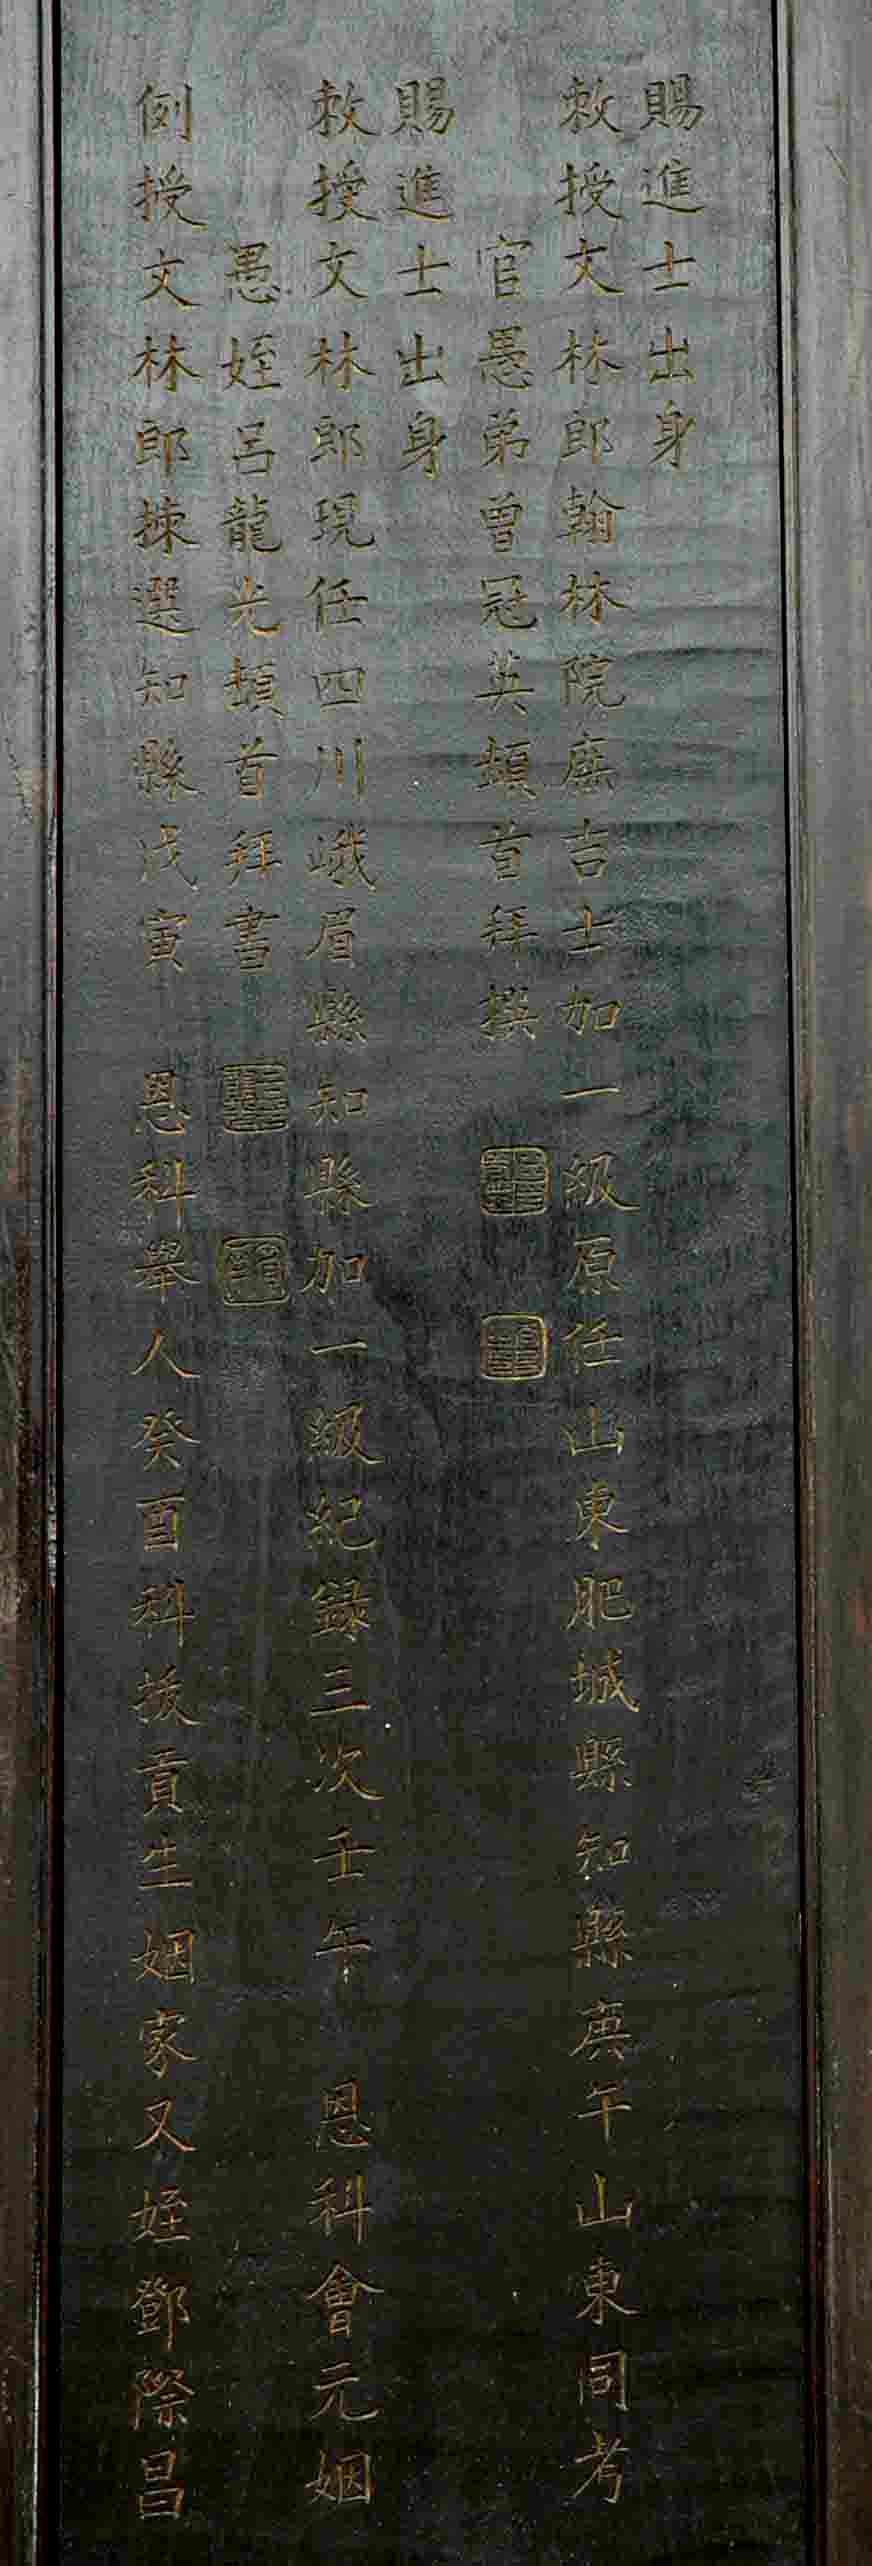 賜進士出身
敕授文林郎翰林院庶吉士加一級原任山東肥城縣知縣庚午山東同考
官愚弟曾冠英頓首拜撰
賜進士出身
敕授文林郎現任四川峨眉縣知縣加一級紀錄三次壬午 恩科會元姻
愚姪呂龍光頓首拜書
例授文林郎揀選知縣戊寅 恩科舉人癸酉科拔貢生姻家又姪鄧際昌